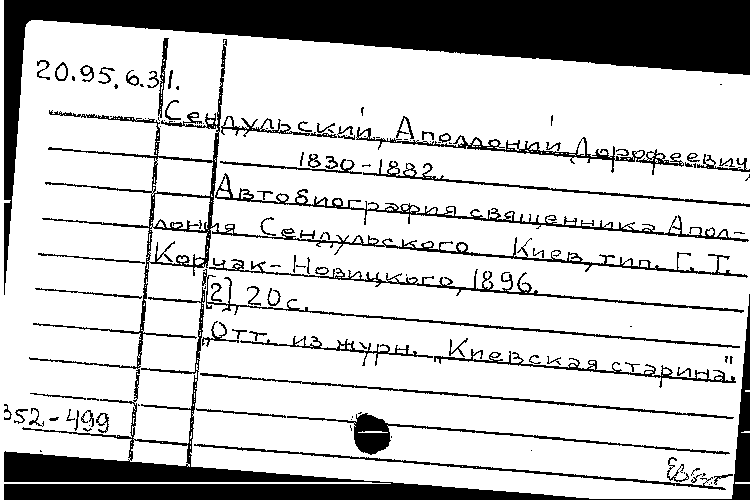 20.95.6.31.
Сендульский, Аполлоний Дорофеевич,
1830-1882.
Автобиография священника Апол-
лония Сендульского Киев, тип. Г. Т.
Корчак-Новицкого, 1896.
[2], 20 с.
„Отт. из журн. „Киевская старина".
352-499